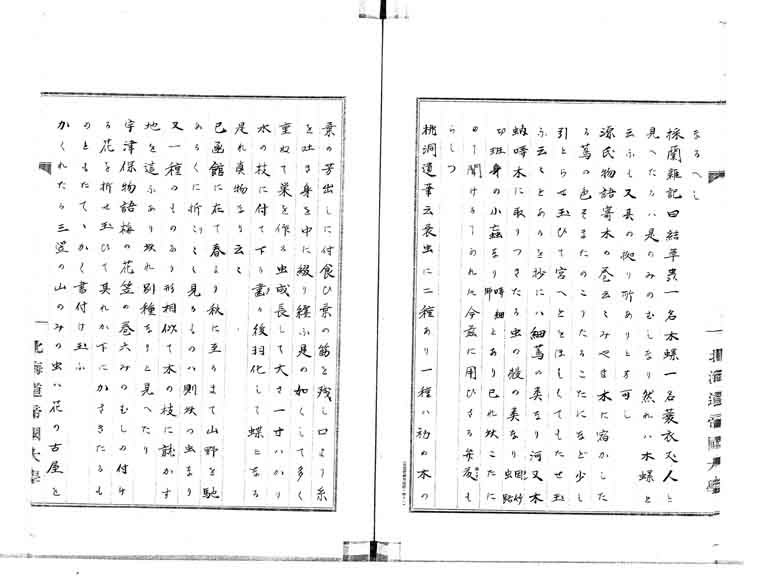 なるへし
採蘭雜記曰結草虫一名木螺一名蓑衣丈人と
見へたるハ是のみのむしなり然れハ木螺と
云ふも又其の拠り所ありとす可し
源氏物語寄木の巻云くみやま木に宿かした
る蔦の色そまたのこりたるこたになど少し
引とらせ玉ひて宮へとおほしくてもたせ玉
ふ云々とあるを抄にハ細蔦の類なり河又木
蚋 木に取りつきたる虫の殻の類なり
班身の小蟲 とあり已れ此こたに
らしつ
桃洞遺筆云蓑虫に二種あり一種ハ初め木の
葉の芳出しに付食ひ葉の筋を残し口より糸
を吐き身を中に綴り纏ふ是の如くして多く
重ねて巣を作る虫成長して大さ一寸ハかり
木の枝に付て下り 後羽化して蝶となる
是れ真物なり云々
己函館に在て春より秋に至るまて山野を馳
あるくに折々見るものハ則此の虫なり
又一種のものあり形相似て木の枝に 著かす
地を這ふあり此れ別種なりと見へたり
宇津保物語梅の花笠の巻云みのむしの付け
る花を折せ玉ひて其れか下にかきたるも
のともたてゝかく書付け玉ふ
かくれたる三笠の山のみの虫ハ花の古屋と
北海道帝國大學
北海道帝國大學